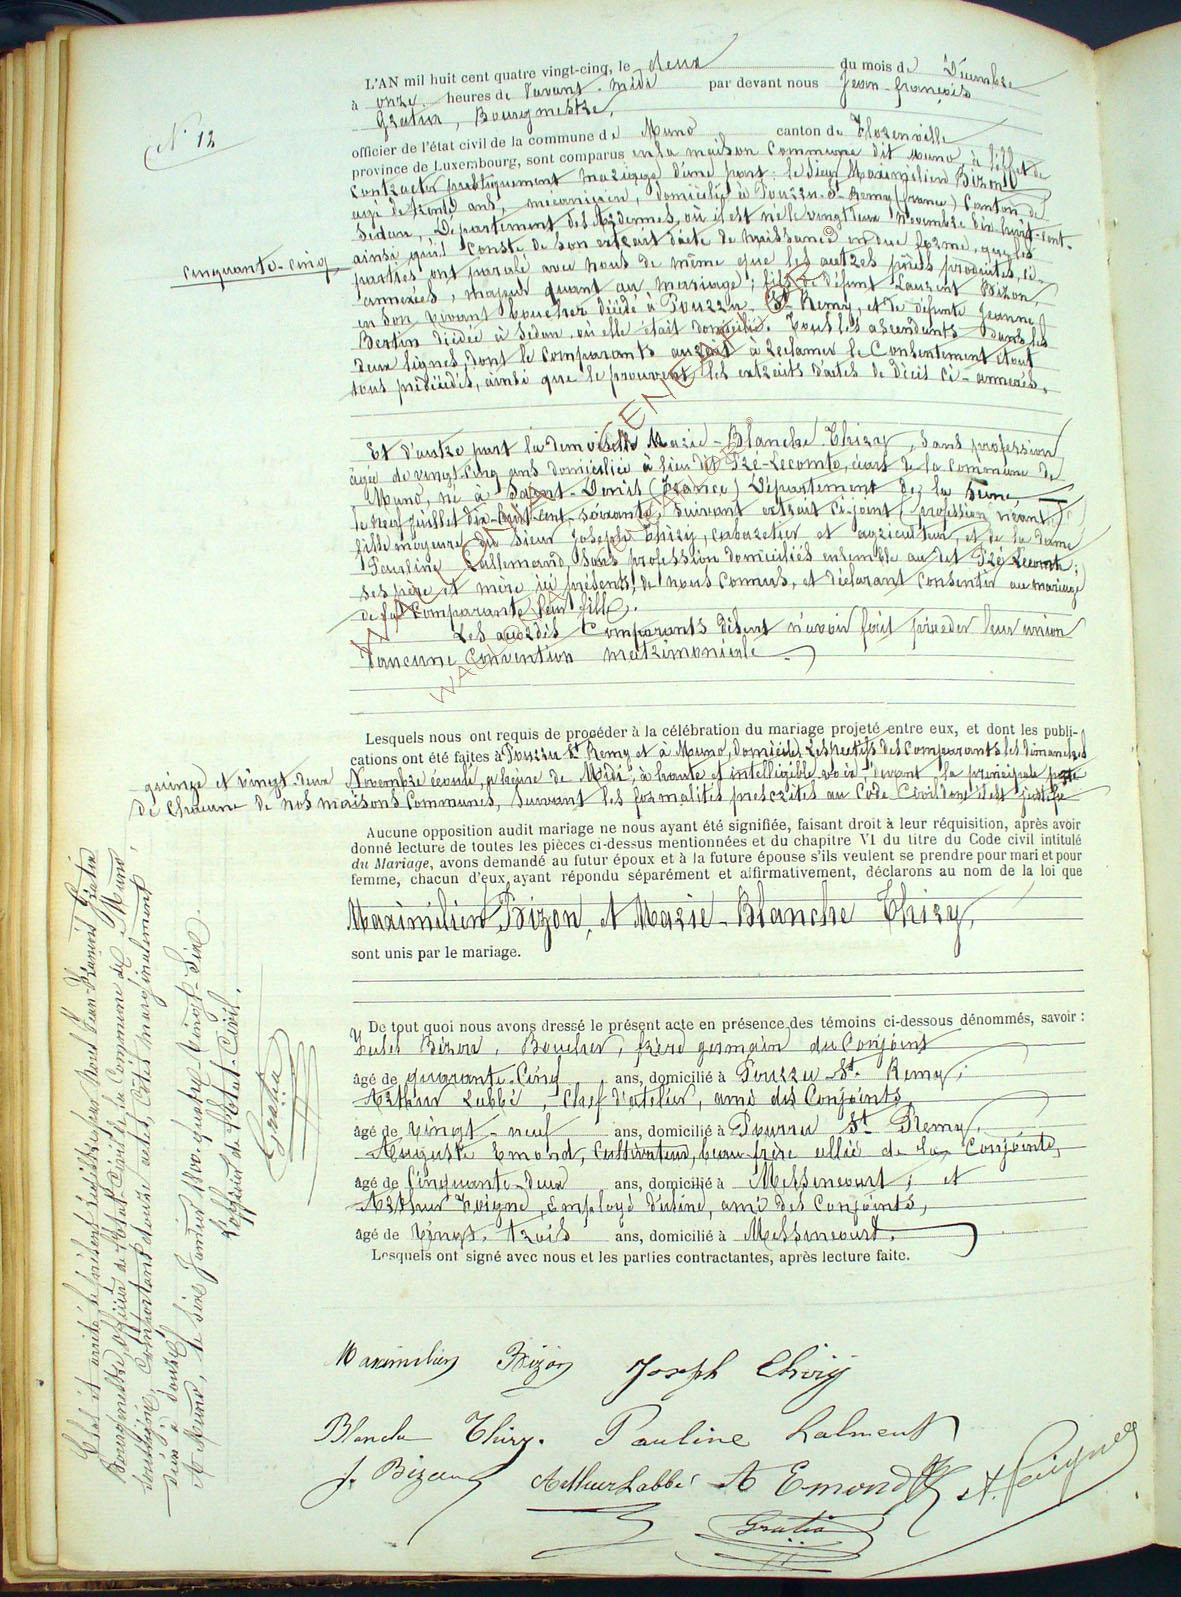 N° 12
L'AN mil huit cent quatre vingt-cinq, le deux du mois de Décembre
à onze heures de l'avant-midi par devant nous Jean-françois
Gratia, Bourgmestre,
officier de l'état civil de la commune de Muno canton de Florenville
province de Luxembourg, sont comparus en la maison Commune dit Muno à l'effet de
contracter publiquement mariage d'une part: le sieur Maximilien Bizon
agé de trente ans, mecanicien, domicilié à Pourru-St-Remy (france) Canton de
Sedan, Département des Ardennes, où il est né le vingt deux Novembre dix-huit-cent-
cinquante-cinq
ainsi qu'il conste de son extrait d'acte de naissance en due forme, que les
parties ont paraphé avec nous de même que les autres pièces produites, ci-
annexées, majeur quant au mariage; fils de défunt Laurent Bizon,
en son vivant boucher décédé à Pourru St Remy, et de défunte Jeanne
Bertin décédée à Sedan où elle était domiciliée. Tous les ascendants dans les
deux lignes, dont le comparants aurait à réclamer le Consentement étant
tous prédécédés, ainsi que le prouvent les extraits d'actes de décès ci-annexés.
Et d'autre part la demoiselle Marie-Blanche Thiry, sans profession
âgée de vingt-cinq ans domiciliée à lieu dit Pré-Lecomte, écart de la commune de
Muno, né à Saint-Denis (France) Département de la Seine,
le neuf juillet dix-huit-cent-soixante, suivant extrait ci-joint (profession néant)
fille mojeure du sieur Joseph Thiry, cabaretier et agriculteur, et de la dame
Pauline Lallemand, sans profession domiciliés ensemble au dit Pré Lecomte;
ses père et mère ici présents, de nous connus, et déclarant consentir au mariage
de la Comparante leur fille.
Les susdits Comparants disent n'avoir fait précéder leur union
d'aucune convention matrimoniale.
Lesquels nous ont requis de procéder à la célébration du mariage projeté entre eux, et dont les publi-
cations ont été faites à Pourru St Remy et à Muno, domiciles respectifs des Comparants les dimanches
quinze et vingt-deux Novembre écoulé, à heure de Midi, à haute et intelligible voix, devant la principale porte
de Chacune de nos maisons Communes, suivant les formalités prescrites au Code Civil dont il est justifié
Aucune opposition audit mariage ne nous ayant été signifiée, faisant droit à leur réquisition, après avoir
donné lecture de toutes les pièces ci-dessus mentionnées et du chapitre VI du titre du Code civil intitulé
du Mariage, avons demandé au futur époux et à la future épouse s'ils veulent se prendre pour mari et pour
femme, chacun d'eux ayant répondu séparément et affirmativement, déclarons au nom de la loi que
Maximilien Bizon, et Marie-Blanche Thiry,
sont unis par le mariage.
De tout quoi nous avons dressé le présent acte en présence des témoins ci-dessous dénommés, savoir :
Jules Bizon, Boucher, frère germain du Conjoint
âgé de quarante-Cinq ans, domicilié à Pourru St. Remy;
Arthur Labbé, Chef d'atelier, ami des Conjoints,
âgé de vingt-neuf ans, domicilié à Pourru St Remy,
Auguste Emond, Cultivateur, beau-frère allié de la Conjointe,
âgé de Cinquante-deux ans, domicilié à Messincourt; et
Arthur Poigne, Employé d'usine, ami des Conjoints,
âgé de Vingt-trois ans, domicilié à Messincourt.
Lesquels ont signé avec nous et les parties contractantes, après lecture faite.
Maximilien Bizon Joseph Thiry
Blanche Thiry. Pauline Lalment
J. Bizon Arthur Labbé A Emond A. Poigne
Gratia
Clos et arrêté le présent registre par Nous Jean-François Gratia
Bourgmestre officier de l'état-Civil de la Commune de Muno,
soussigné, Comportant douze actes, Cotés marginalement
d'un à douze,
A Muno, le six Janvier 1800-quatre-vingt-Six.
L'officier de l'état-Civil.
Gratia